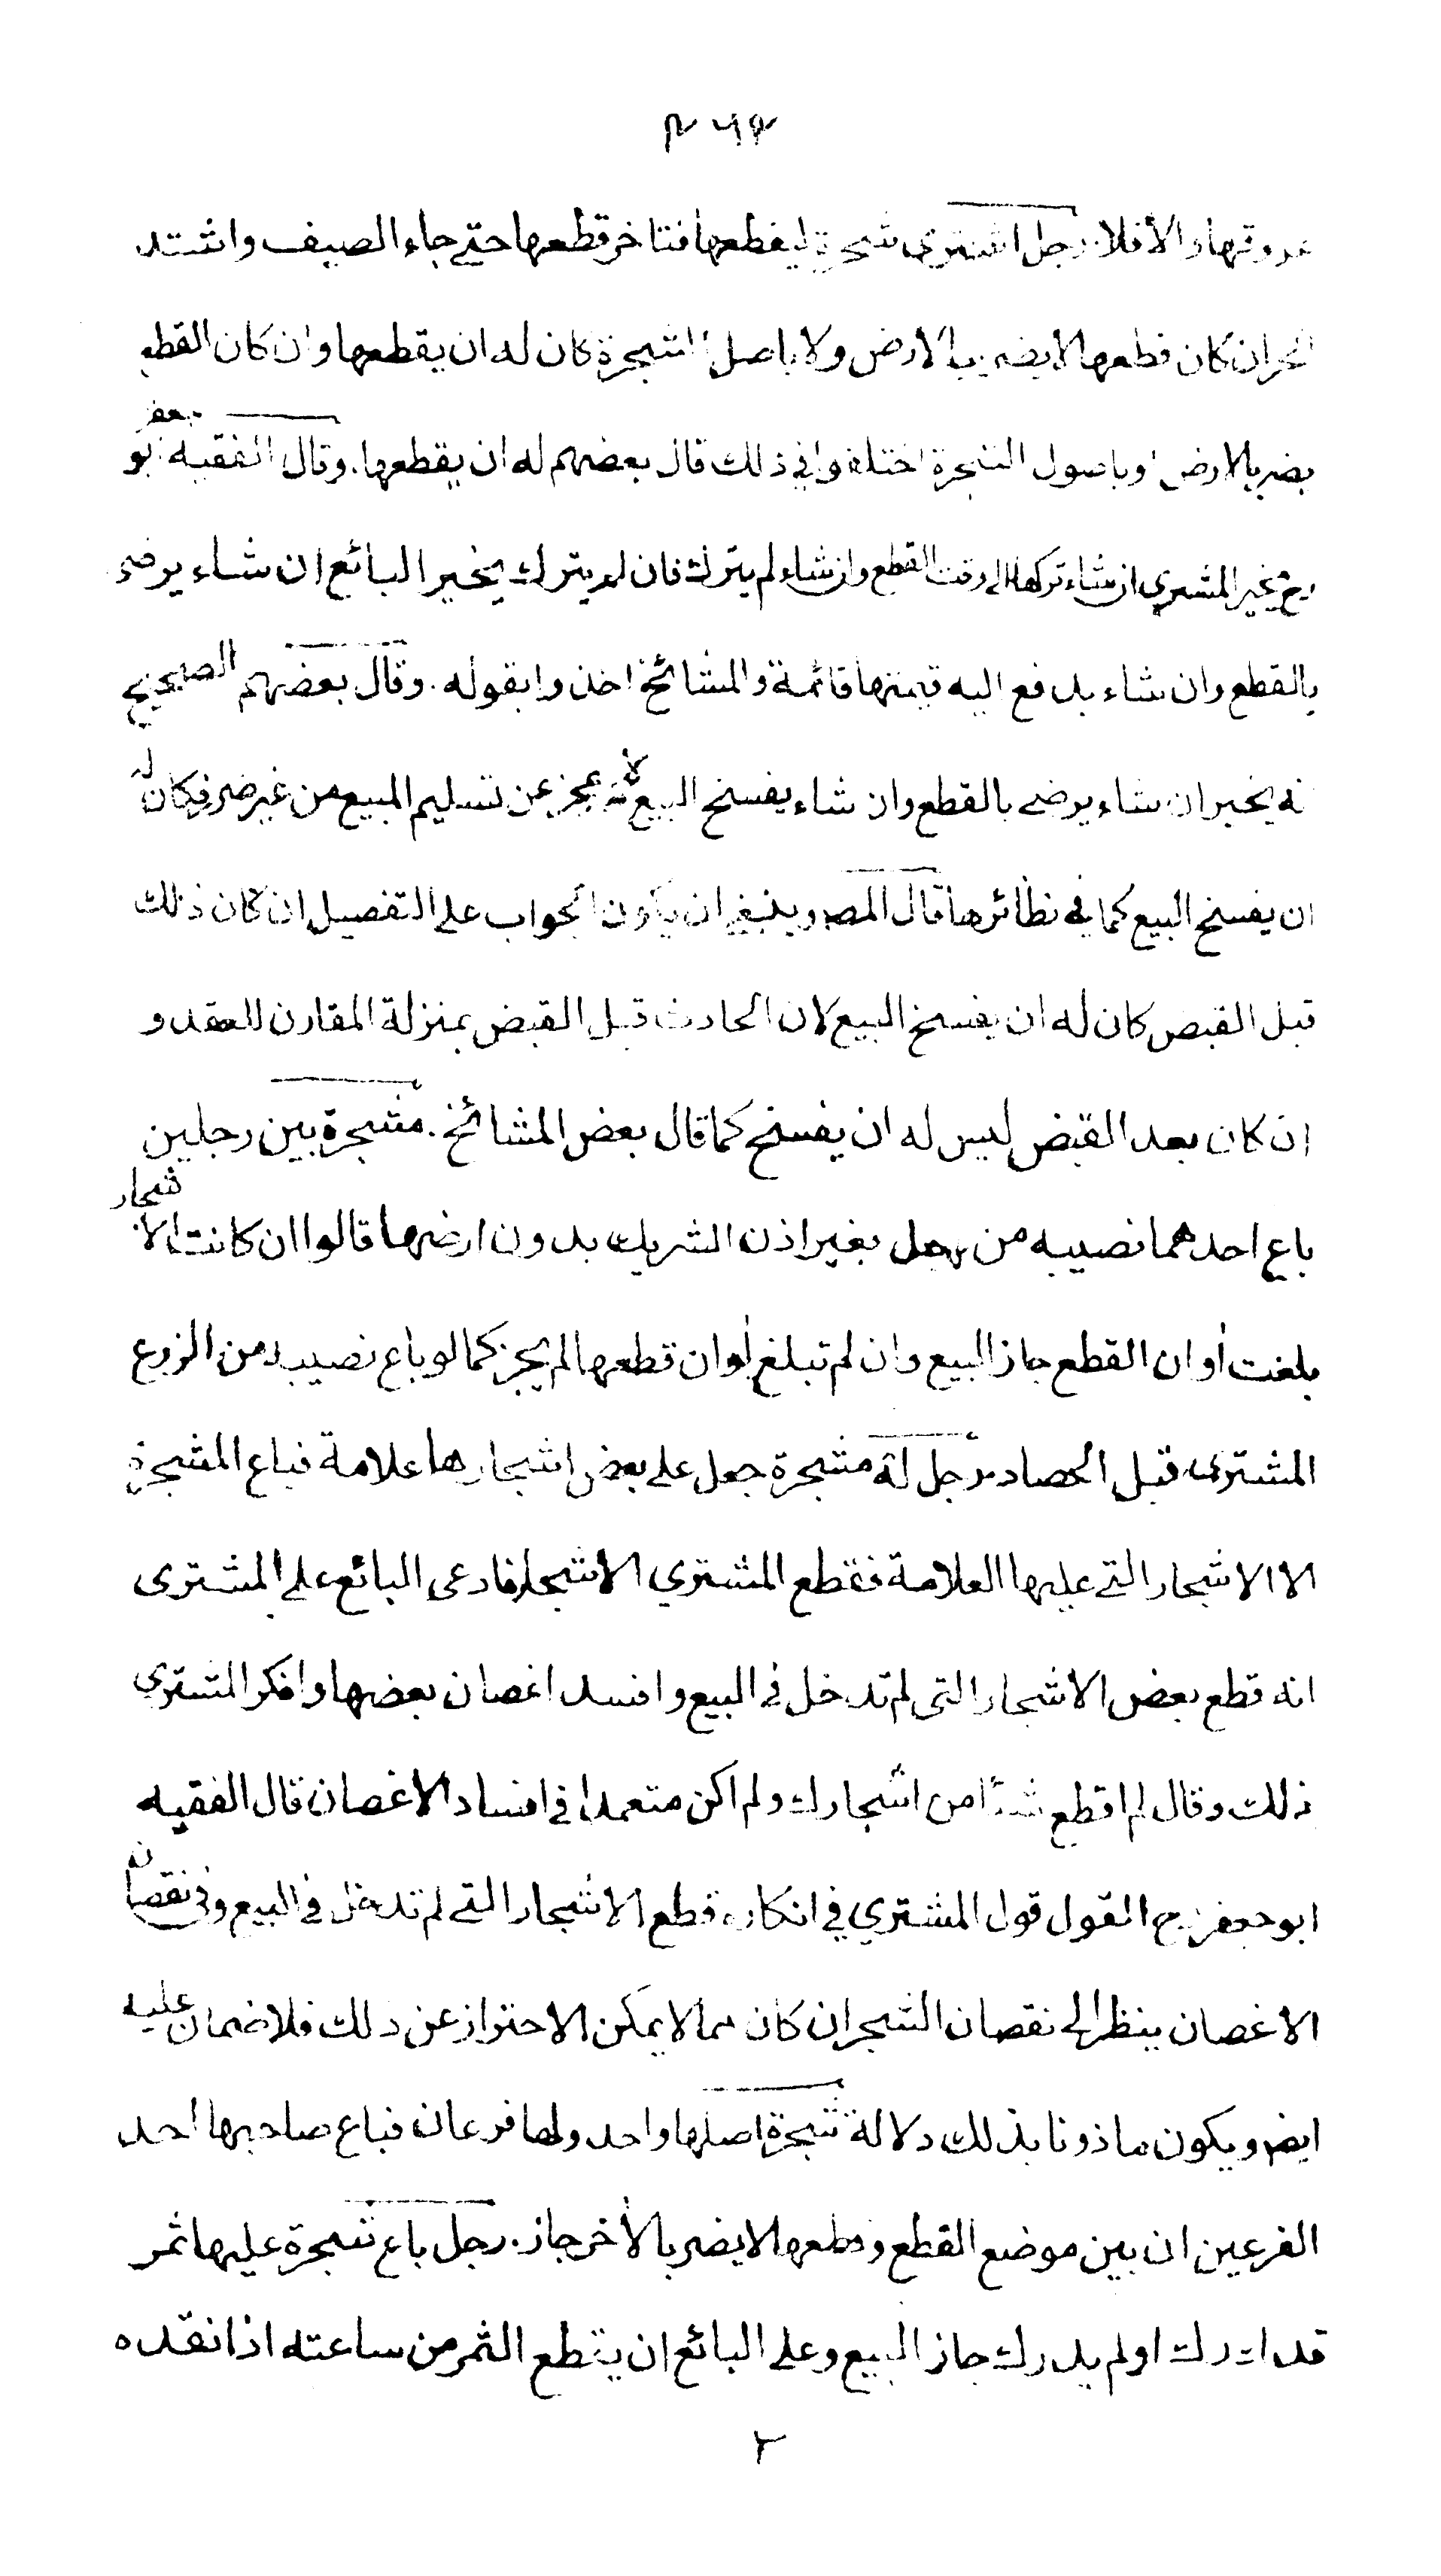 عروقها والا فلا. رجل اشترى شجرة ليقطعها فتاخر قطعها حتى جاء الصيف واشتد
الحر ان كان قطعها لا يضر بالارض ولا باصل الشجرة كان له ان يقطعها وان كان القطع
يضر بالارض او باصول الشجرة اختلفوا في ذلك قال بعضهم له ان يقطعها. وقال الفقيه ابو جعفر
رح يخير المشتري ان شاء تركها الى وقت القطع وان شاء لم يترك فان لم يترك يخير البائع ان شاء يرضى
بالقطع وان شاء يدفع اليه قيمتها قائمة والمشائخ اخذوا بقوله. وقال بعضهم الصحيح
انه يخير ان شاء يرضى بالقطع وان شاء يفسخ البيع لانه عجز عن تسليم المبيع من غير ضرر فكان له
ان يفسخ البيع كما في نظائرها قال المص وينبغي ان يكون الجواب على التفصيل ان كان ذلك
قبل القبض كان له ان يفسخ البيع لان الحادث قبل القبض بمنزلة المقارن للعقد و
ان كان بعد القبض ليس له ان يفسخ كما قال بعض المشائخ. مشجرة بين رجلين
باع احدهما نصيبه من رجل بغير اذن الشريك بدون ارضها قالوا ان كانت الاشجار
بلغت أوان القطع جاز البيع وان لم تبلغ أوان قطعها لم يجز كما لو باع نصيبه من الزرع
المشترى قبل الحصاد رجل له مشجرة جعل على بعض اشجارها علامة فباع المشجرة
الا الاشجار التي عليها العلامة فقطع المشتري الاشجار فادعى البائع على المشترى
انه قطع بعض الاشجار التى لم تدخل في البيع وافسد اغصان بعضها وانكر المشتري
ذلك وقال لم اقطع شيئا من اشجارك ولم اكن متعمدا في افساد الاغصان قال الفقيه
ابو جعفر رح القول قول المشتري في انكاره قطع الاشجار التي لم تدخل في البيع وفي نقصان
الاغصان ينظر الى نقصان الشجر ان كان مما لا يمكن الاحتراز عن ذلك فلا ضمان عليه
ايضا ويكون ماذونا بذلك دلالة شجرة اصلها واحد ولها فرعان فباع صاحبها احد
الفرعين ان بين موضع القطع وقطعها لا يضر بالأخر جاز. رجل باع شجرة عليها ثمر
قد ادرك او لم يدرك جاز البيع وعلى البائع ان يقطع الثمر من ساعته اذا نقده
٢